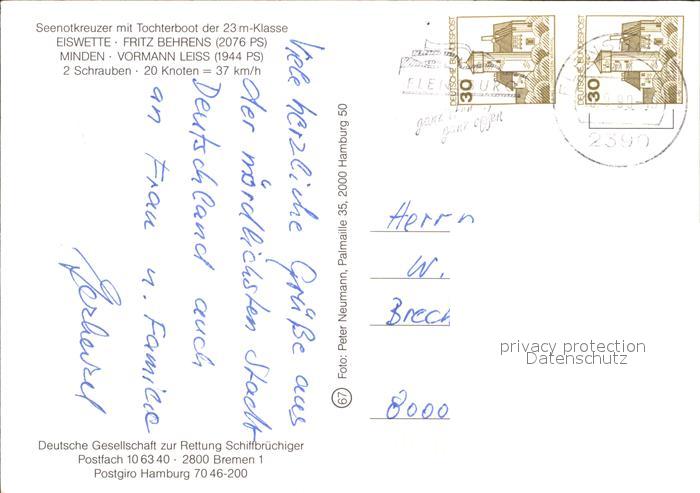 Seenotkreuzer mit Tochterboot der 23 m-Klasse
EISWETTE · FRITZ BEHRENS (2076 PS)
MINDEN · VORMANN LEISS (1944 PS)
2 Schrauben · 20 Knoten = 37 km/h
Viele herzliche Grüße aus
der nördlichsten Stadt
Deutschland auch
an Frau u. Familie
Deutsche Gesellschaft zur Rettung Schiffbrüchiger
Postfach 10 63 40 · 2800 Bremen 1
Postgiro Hamburg 70 46-200
67 Foto: Peter Neumann, Palmaille 35, 2000 Hamburg 50
DEUTSCHE BUNDESPOST 30
DEUTSCHE BUNDESPOST 30
FLENSBURG
ganz offen
2390
Herrn
W.
Brech
8000
privacy protection
Datenschutz